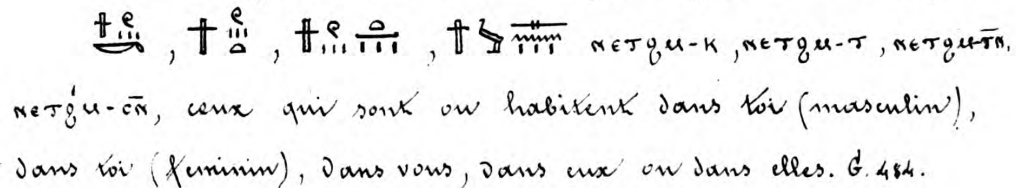 ⲛⲉⲧϩⲙ-ⲕ, ⲛⲉⲧϩⲙ-ⲧ, ⲛⲉⲧϩⲙ-ⲧ̄ⲛ̄,
ⲛⲉⲧϩⲙ-ⲥ̄ⲛ̄, ceux qui sont ou habitent dans toi (masculin),
dans toi (feminin), dans vous, dans eux ou dans elles. G. 484.